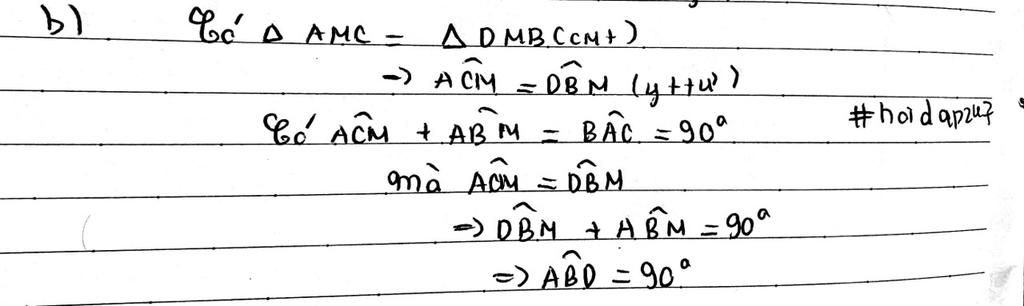 b) Có Δ AMC = Δ DMB (cmt)
→ AĈM = DB̂M (yttư)
Có AĈM + AB̂M = BÂC = 90° #hoidap247
mà AĈM = DB̂M
=> DB̂M + AB̂M = 90°
=> AB̂D = 90°